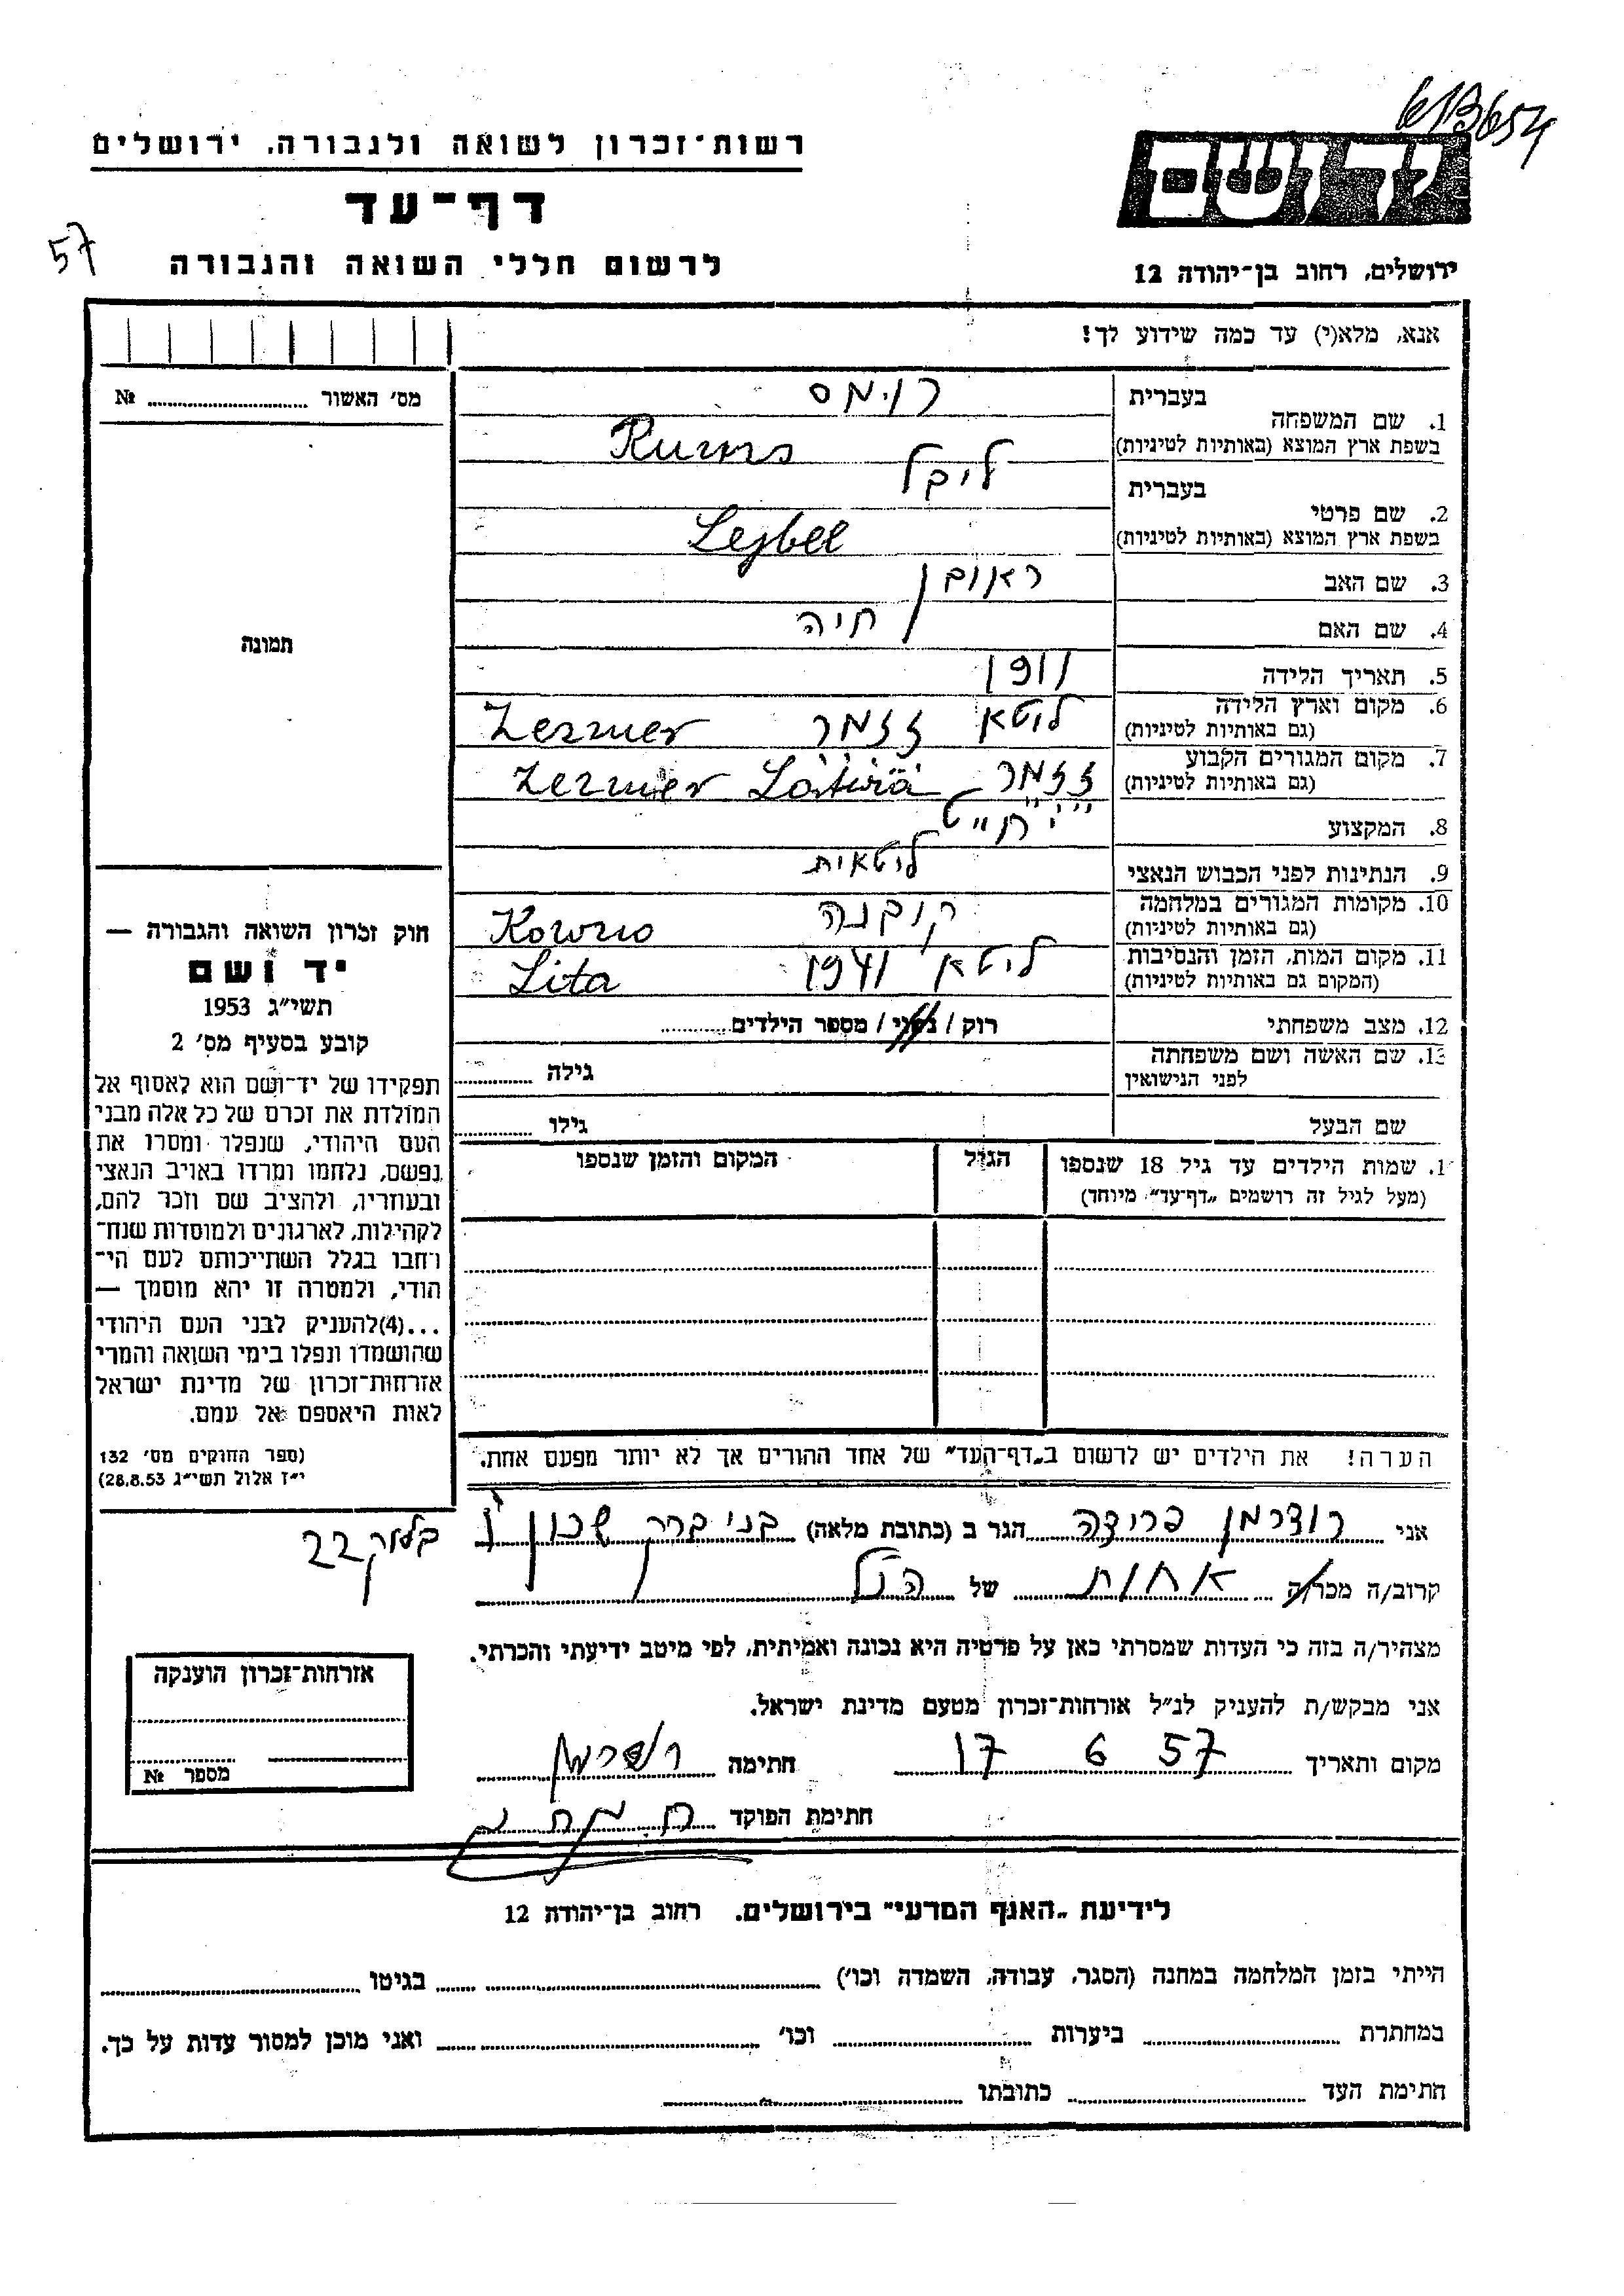 613654
רשות-זכרון לשואה ולגבורה, ירושלים
דף-עד
57
לרשום חללי השואה והגבורה
יד ושם
ירושלים, רחוב בן-יהודה 12
אנא, מלא(י) עד כמה שידוע לך!
מס' האשור № ........
תמונה
בעברית רומס
1. שם המשפחה
בשפת ארץ המוצא (באותיות לטיניות) Rums
בעברית לייבל
2. שם פרטי
בשפת ארץ המוצא (באותיות לטיניות) Lejbel
3. שם האב ראובן
4. שם האם חיה
5. תאריך הלידה 1911
6. מקום וארץ הלידה ליטא זזמר Zezmer
(גם באותיות לטיניות)
7. מקום המגורים הקבוע זזמר Zezmer
(גם באותיות לטיניות)
8. המקצוע חייט
9. הנתינות לפני הכבוש הנאצי ליטאית
10. מקומות המגורים במלחמה קובנה Kowno
(גם באותיות לטיניות)
11. מקום המות, הזמן והנסיבות ליטא 1941 Lita
(המקום גם באותיות לטיניות)
12. מצב משפחתי רוק / נשוי / מספר הילדים........
13. שם האשה ושם משפחתה גילה ........
לפני הנישואין
שם הבעל גילו ........
1. שמות הילדים עד גיל 18 שנספו הגיל המקום והזמן שנספו
(מעל לגיל זה רושמים "דף-עד" מיוחד)
הערה! את הילדים יש לרשום ב"דף-העד" של אחד ההורים אך לא יותר מפעם אחת.
חוק זכרון השואה והגבורה —
יד ושם
תשי"ג 1953
קובע בסעיף מס' 2
תפקידו של יד-ושם הוא לאסוף אל
המולדת את זכרם של כל אלה מבני
העם היהודי, שנפלו ומסרו את
נפשם, נלחמו ומרדו באויב הנאצי
ובעוזריו, ולהציב שם וזכר להם,
לקהילות, לארגונים ולמוסדות שנח-
רחבו בגלל השתייכותם לעם הי-
הודי, ולמטרה זו יהא מוסמך —
...(4)להעניק לבני העם היהודי
שהושמדו ונפלו בימי השואה והמרי
אזרחות-זכרון של מדינת ישראל
לאות היאספם אל עמם.
(ספר החוקים מס' 132
י"ז אלול תשי"ג 28.8.53)
אני רודרמן פרידה הגר ב (כתובת מלאה) בני ברק שכון ו
בלוק 22
קרוב/ה מכר/ה אחות של הנ"ל
מצהיר/ה בזה כי העדות שמסרתי כאן על פרטיה היא נכונה ואמיתית, לפי מיטב ידיעתי והכרתי.
אני מבקש/ת להעניק לנ"ל אזרחות-זכרון מטעם מדינת ישראל.
מקום ותאריך 17 6 57 חתימה רודרמן
חתימת הפוקד
אזרחות-זכרון הוענקה
מספר №
לידיעת "האגף המדעי" בירושלים, רחוב בן-יהודה 12
הייתי בזמן המלחמה במחנה (הסגר, עבודה, השמדה וכו') ........ בגיטו ........
במחתרת ........ ביערות ........ וכו' ........ ואני מוכן למסור עדות על כך.
חתימת העד ........ כתובתו ........